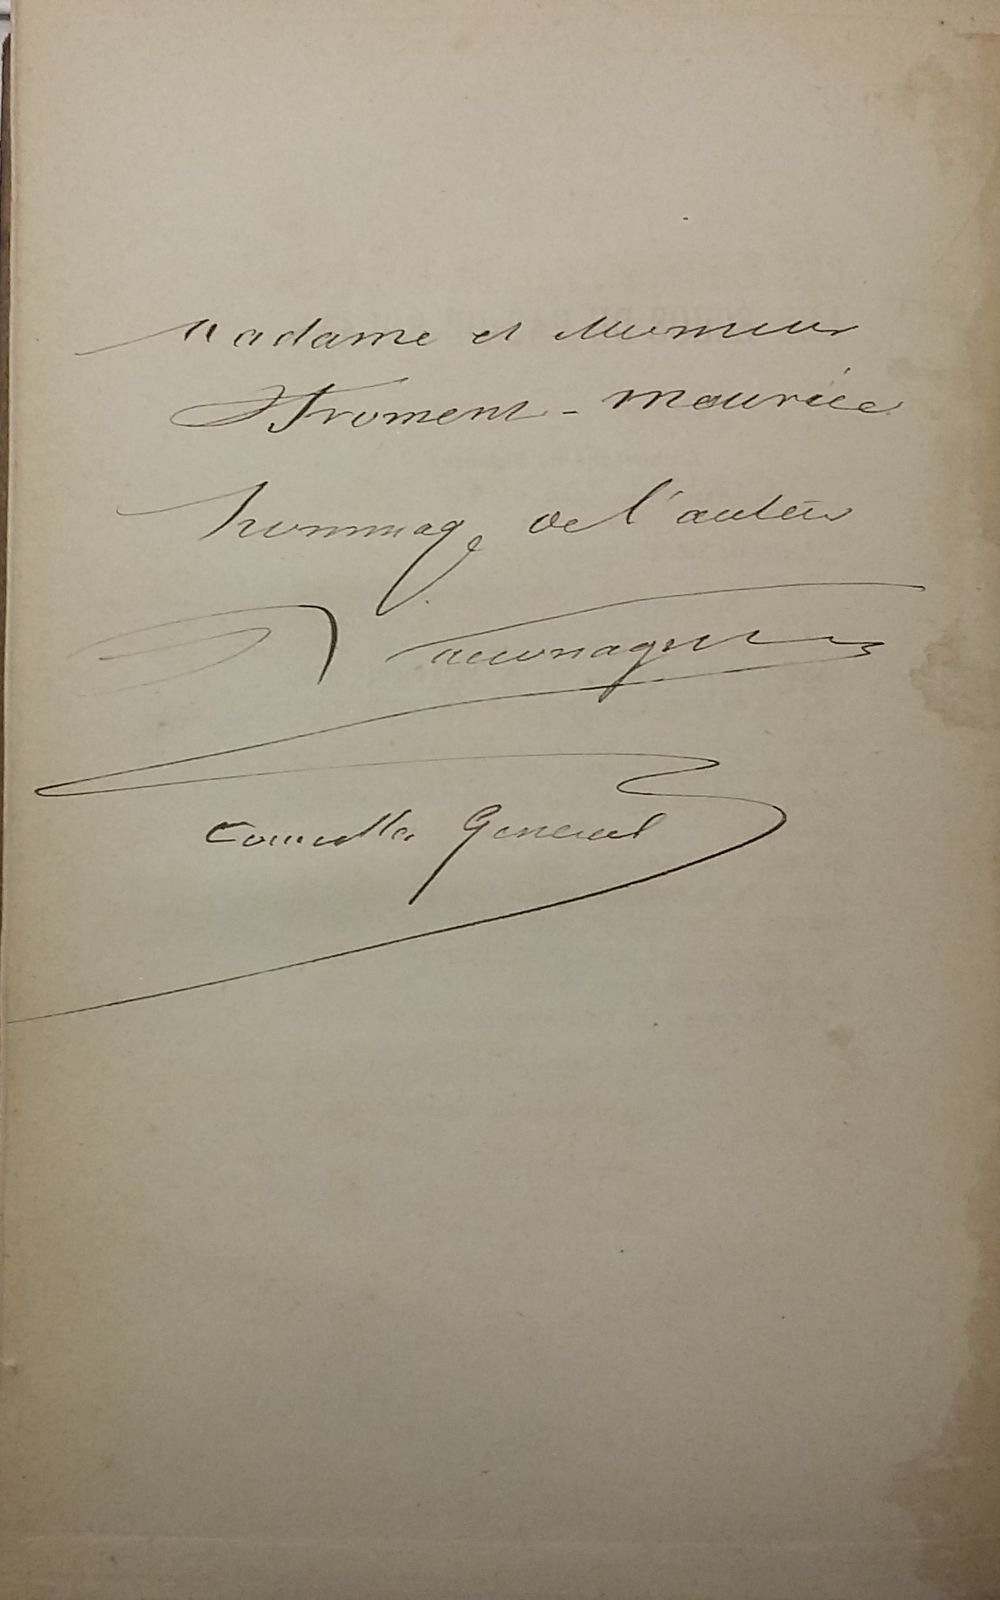 Madame et Monsieur
Froment-Meurice
hommage de l'auteur
General